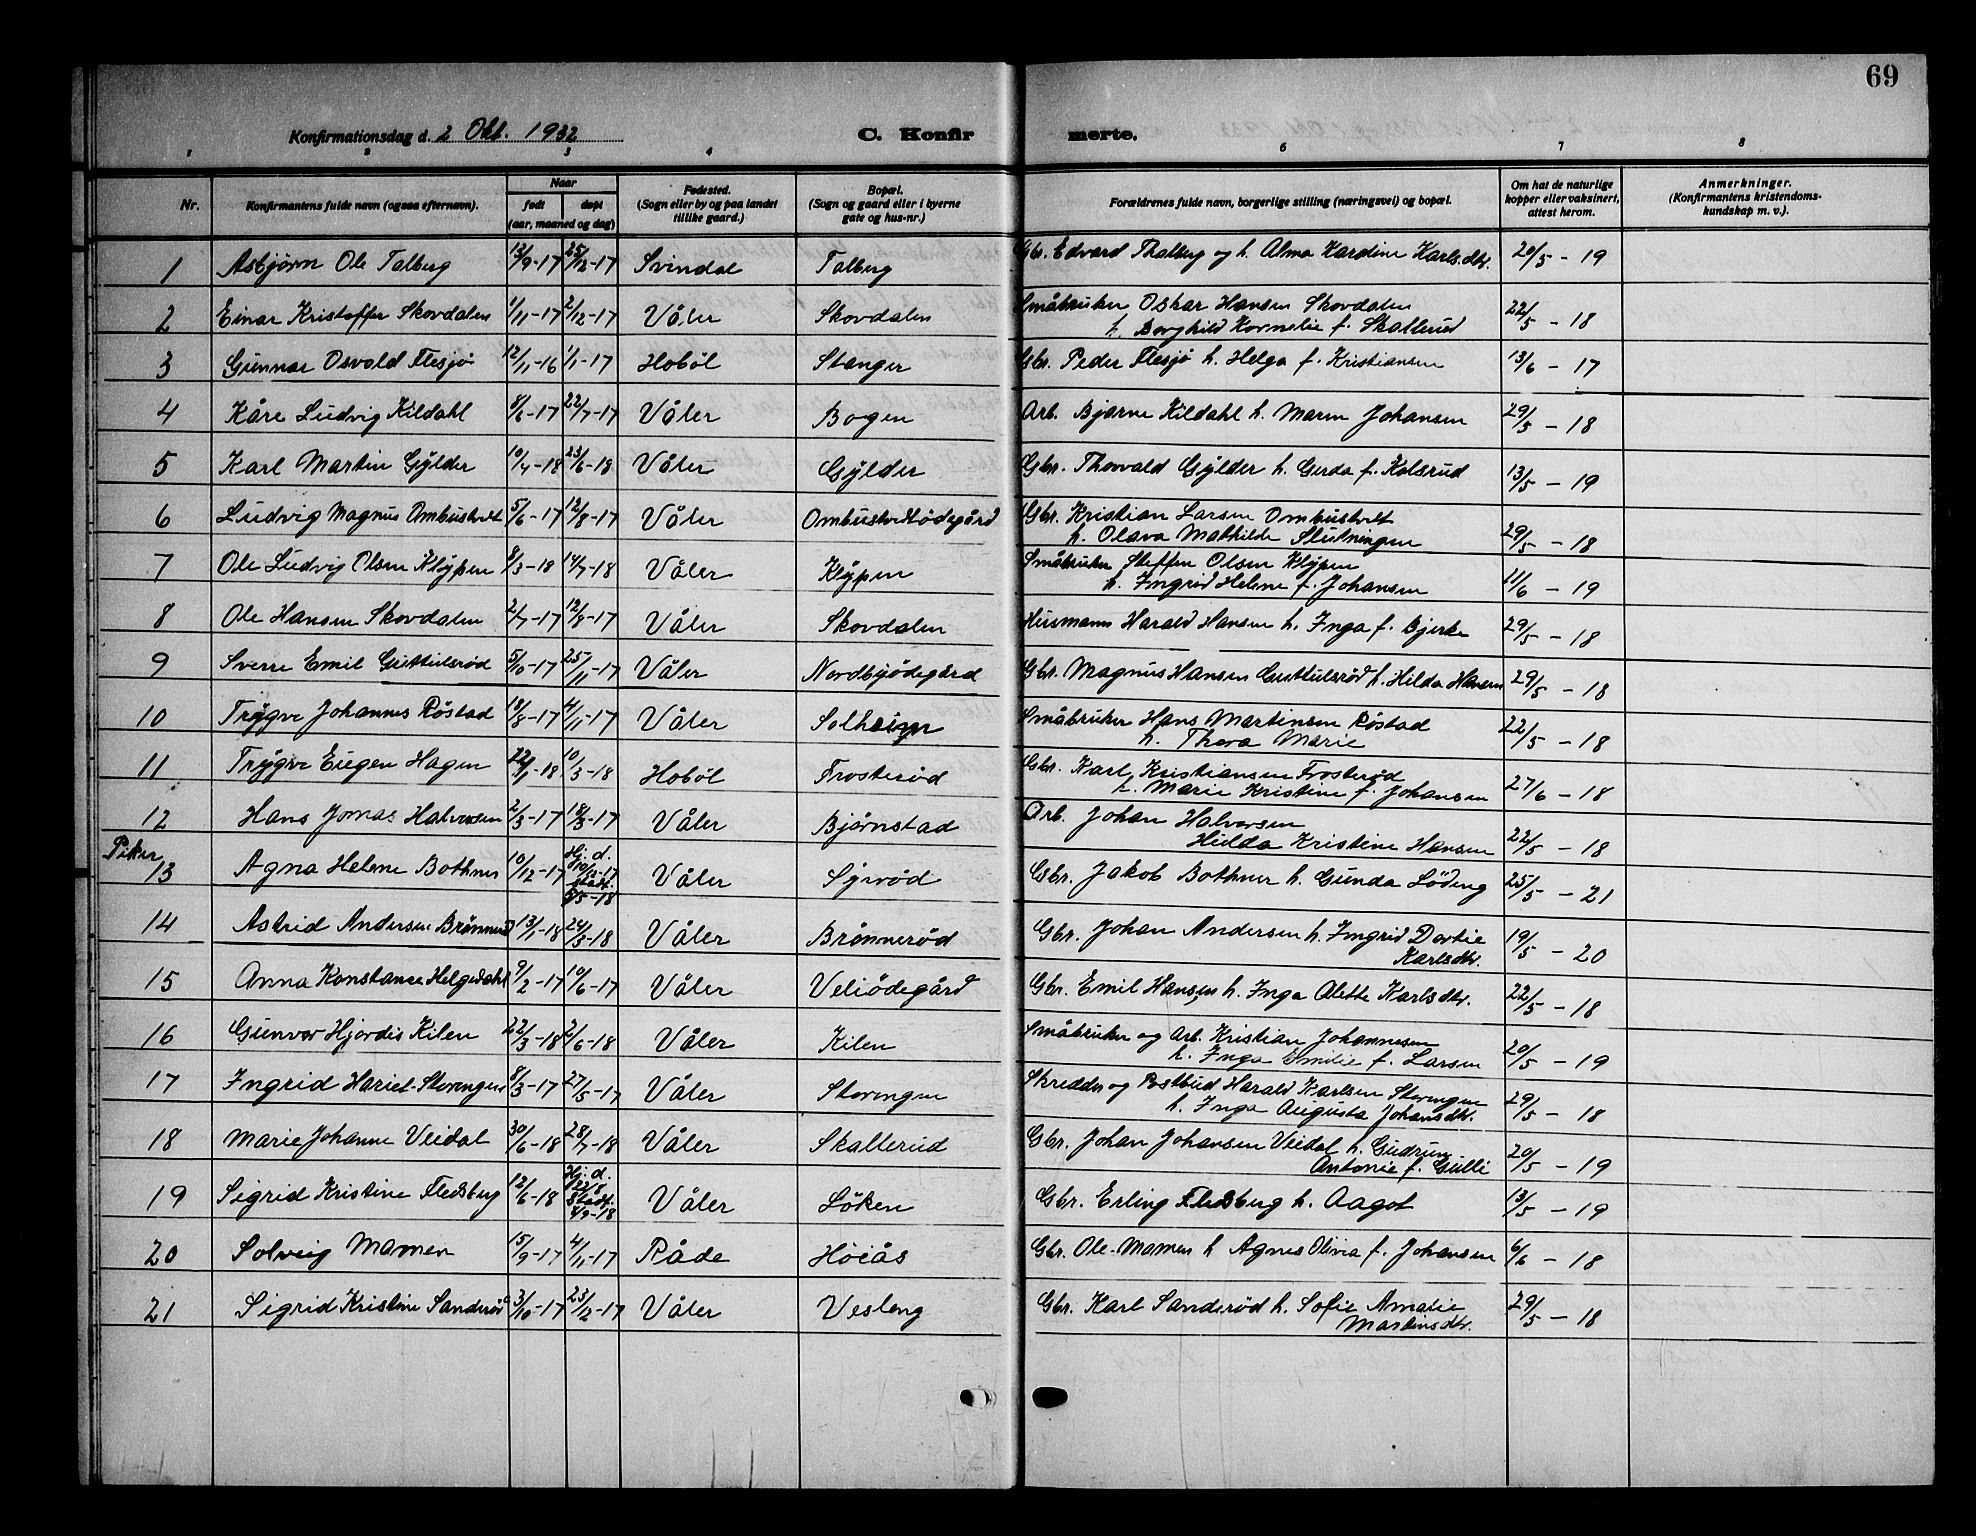 69
Konfirmationsdag d. 2 Okt. 1932
C. Konfirmerte.
1 2 3 4 6 7 8
Nr.
Konfirmantens fulde navn (ogsaa efternavn).
Naar
født døpt
(aar, maaned og dag)
Fødested.
(Sogn eller by og paa landet
tillike gaard.)
Bopæl.
(Sogn og gaard eller i byerne
gate og hus-nr.)
Forældrenes fulde navn, borgerlige stilling (næringsvei) og bopæl.
Om hat de naturlige
kopper eller vaksinert,
attest herom.
Anmerkninger.
(Konfirmantens kristendoms-
kundskap m. v.).
1 Asbjørn Ole Talberg 13/9-17 25/12-17 Svindal Talberg Gbr. Edvard Thalberg og h. Alma Kardine Karlsdtr. 20/5 - 19
2 Einar Kristoffer Skovdalen 1/11-17 2/12-17 Våler Skovdalen Småbruker Oskar Hansen Skovdalen
h. Borghild Kornelie f. Skallerud 22/5 - 18
3 Gunnar Osvald Flesjø 12/11-16 1/1-17 Hobøl Stanger Gbr. Peder Flesjø h. Helga f. Kristiansen 13/6 - 17
4 Kåre Ludvig Kildahl 8/6-17 22/7-17 Våler Bogen Arb. Bjarne Kildahl h. Maren Johansen 29/5 - 18
5 Karl Martin Gylder 10/4-18 23/6-18 Våler Gylder Gbr. Thorvald Gylder h. Gerda f. Kolsrud 13/5 - 19
6 Ludvig Magnus Ombustvet 5/6-17 12/8-17 Våler Ombustvedtødegård Gbr. Kristian Larsen Ombustvet
h. Olava Mathilde Slutningen 29/5 - 18
7 Ole Ludvig Olsen Klypen 8/3-18 14/7-18 Våler Klypen Småbruker Steffen Olsen Klypen
h. Ingrid Helene f. Johansen 11/6 - 19
8 Ole Hansen Skovdalen 2/7-17 12/8-17 Våler Skovdalen Husmann Harald Hansen h. Inga f. Bjerke 29/5 - 18
9 Sverre Emil Guttulsrød 5/10-17 25/11-17 Våler Nordbyødegård Gbr. Magnus Hansen Guttulsrød h. Hilda Hansen 29/5 - 18
10 Trygve Johannes Røstad 18/8-17 4/11-17 Våler Solheim Småbruker Hans Martinsen Røstad
h. Thora Marie 22/5 - 18
11 Trygve Eugen Hagen 22/1-18 10/3-18 Hobøl Frosterød Gbr. Karl Kristiansen Frosterød
h. Marie Kristine f. Johansen 27/6 - 18
12 Hans Jonas Halvorsen 2/3-17 18/3-17 Våler Bjørnstad Arb. Johan Halvorsen
Hulda Kristine Hansen 22/5 - 18
Piker
13 Agna Helene Bothner 10/12-17 Hj. d. 10/12-17 stadf. 5/5-18 Våler Syrød Gbr. Jakob Bothner h. Gunda Løding 25/5 - 21
14 Astrid Andersen Brønnerød 13/1-18 24/3-18 Våler Brønnerød Gbr. Johan Andersen h. Ingrid Dortie
Karlsdtr. 19/5 - 20
15 Anna Konstance Helgedahl 9/2-17 10/6-17 Våler Veliødegård Gbr. Emil Hansen h. Inga Alette Karlsdtr. 22/5 - 18
16 Gunvor Hjordis Kilen 22/3-18 2/6-18 Våler Kilen Småbruker og Arb. Kristian Johannesen
h. Inga Emilie f. Larsen 20/5 - 19
17 Ingrid Hariet Storengen 8/3-17 27/5-17 Våler Storengen Skredder og Postbud Harald Karlsen Storengen
h. Inga Augusta Johansdtr. 29/5 - 18
18 Marie Johanne Veidal 30/6-18 28/7-18 Våler Skallerud Gbr. Johan Johansen Veidal h. Gudrun
Antonie f. Gulli 20/5 - 19
19 Sigrid Kristine Fledsberg 12/6-18 Hj. d. 22/8 Stadf. 8/9-18 Våler Løken Gbr. Erling Fledsberg h. Aagot 13/5 - 19
20 Solveig Mamen 15/9-17 4/11-17 Råde Høiås Gbr. Ole Mamen h Agnes Olivia f. Johansen 6/6 - 18
21 Sigrid Kristine Sanderød 3/10-17 23/12-17 Våler Vesleng Gbr. Karl Sanderød h. Sofie Amalie
Martinsdtr. 29/5 - 18